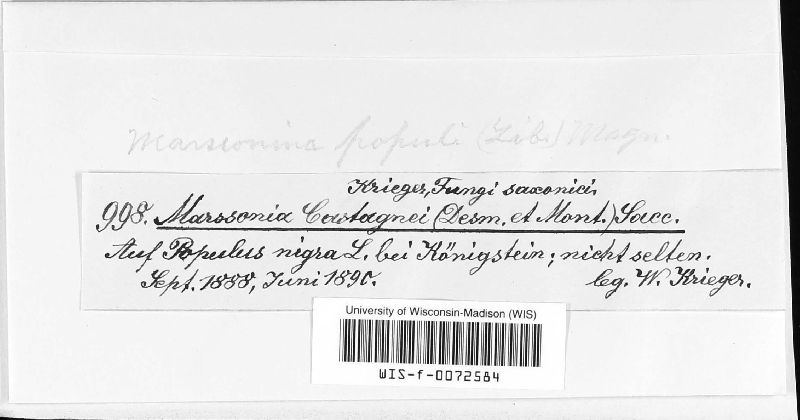 Marssonina populi (Lib.) Magn.
Krieger, Fungi saxonici.
998. Marssonia Castagnei (Desm. et Mont.) Sacc.
Auf Populus nigra L. bei Königstein; nicht selten.
Sept. 1888, Juni 1890. leg. W. Krieger.
University of Wisconsin-Madison (WIS)
WIS-f-0072584